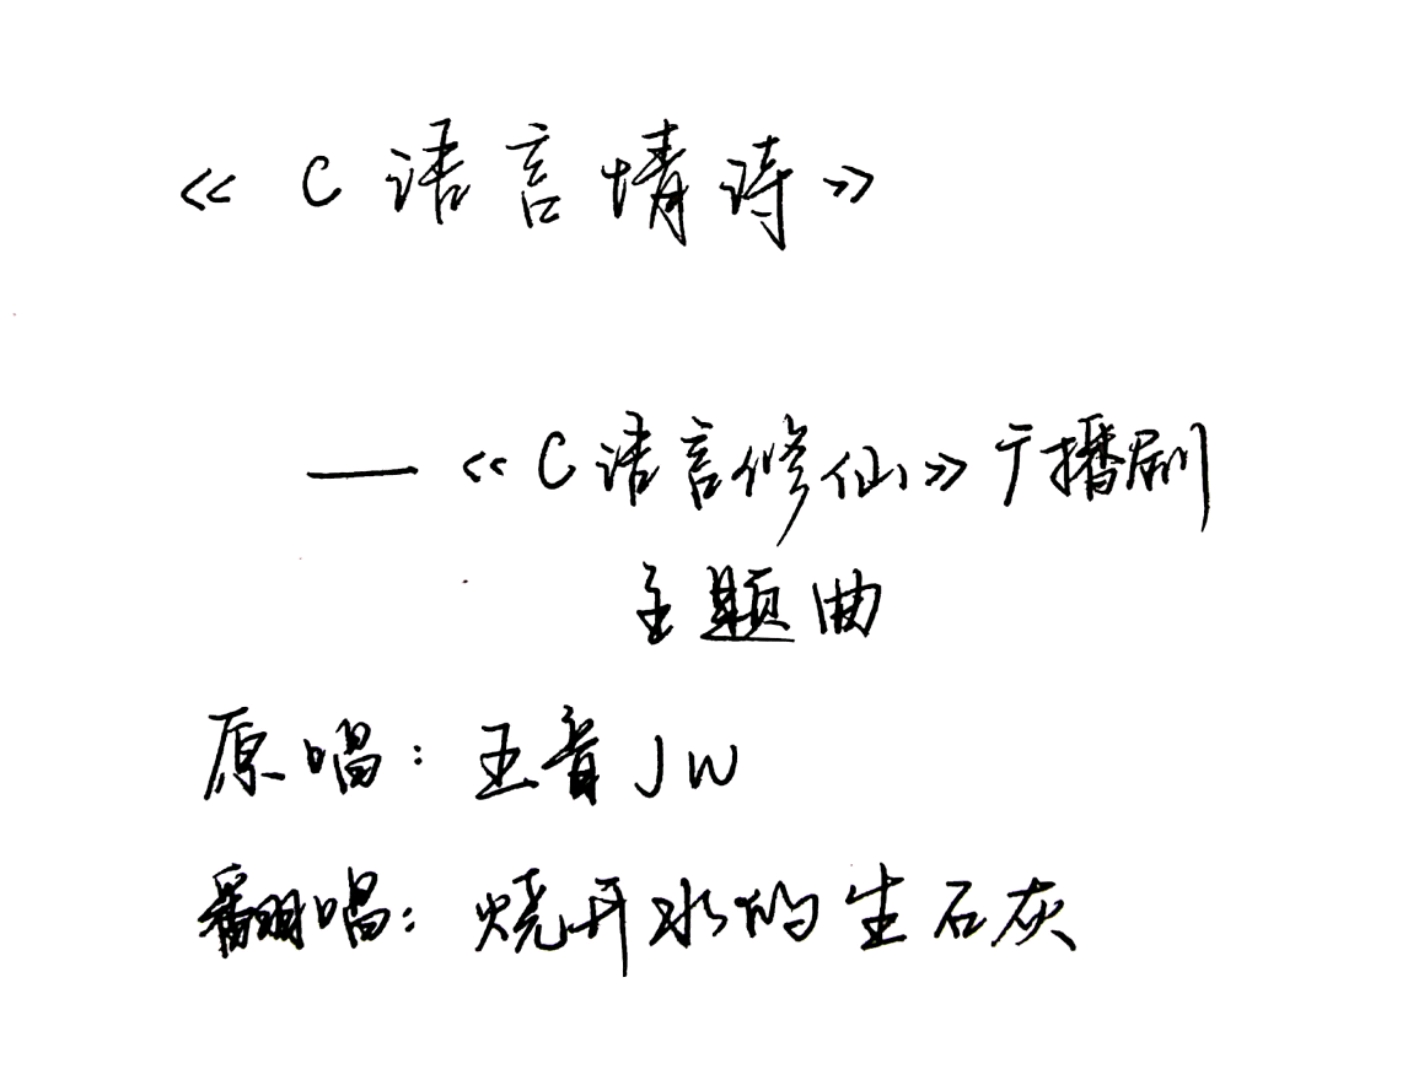 《C语言情诗》
—《C语言修仙》广播剧
主题曲
原唱：王音JW
翻唱：烧开水的生石灰